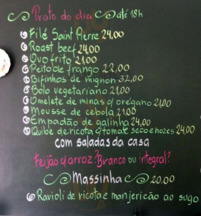 Prato do dia até 18h
Filé Saint Pierre 24,00
Roast Beef 24,00
Ovo frito 21,00
Peito de frango 22,00
Bifinhos de mignon 32,00
Bolo vegetariano 21,00
Omelete de minas c/ orégano 21,00
Mousse de cebola 21,00
Empadão de galinha 24,00
Quibe de ricota c/ tomate seco e nozes 24,00
com saladas da casa
Feijão c/ arroz? Branco ou integral?
Massinha 20,00
Ravioli de ricota e manjericão ao sugo